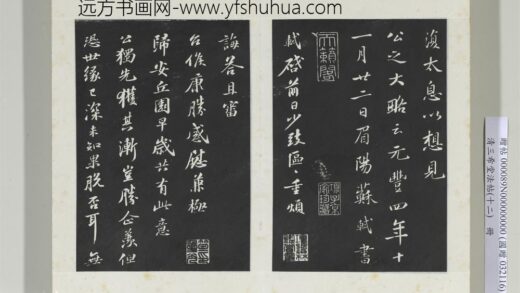 远方书画网-www.yfshuhua.com
復太息以想見
公之大略云元豐四年十
一月廿二日眉陽蘇軾書
軾啓前日少致區〻重煩
誨答且審
台候康勝感慰兼極
歸安丘園早歲共有此意
公獨先獲其漸豈勝企羨但
憑世緣已深未知果脫否耳無
天籟閣
贈帖 000089N000000000 (滬贈 032116)
清三希堂法帖(十二) 冊